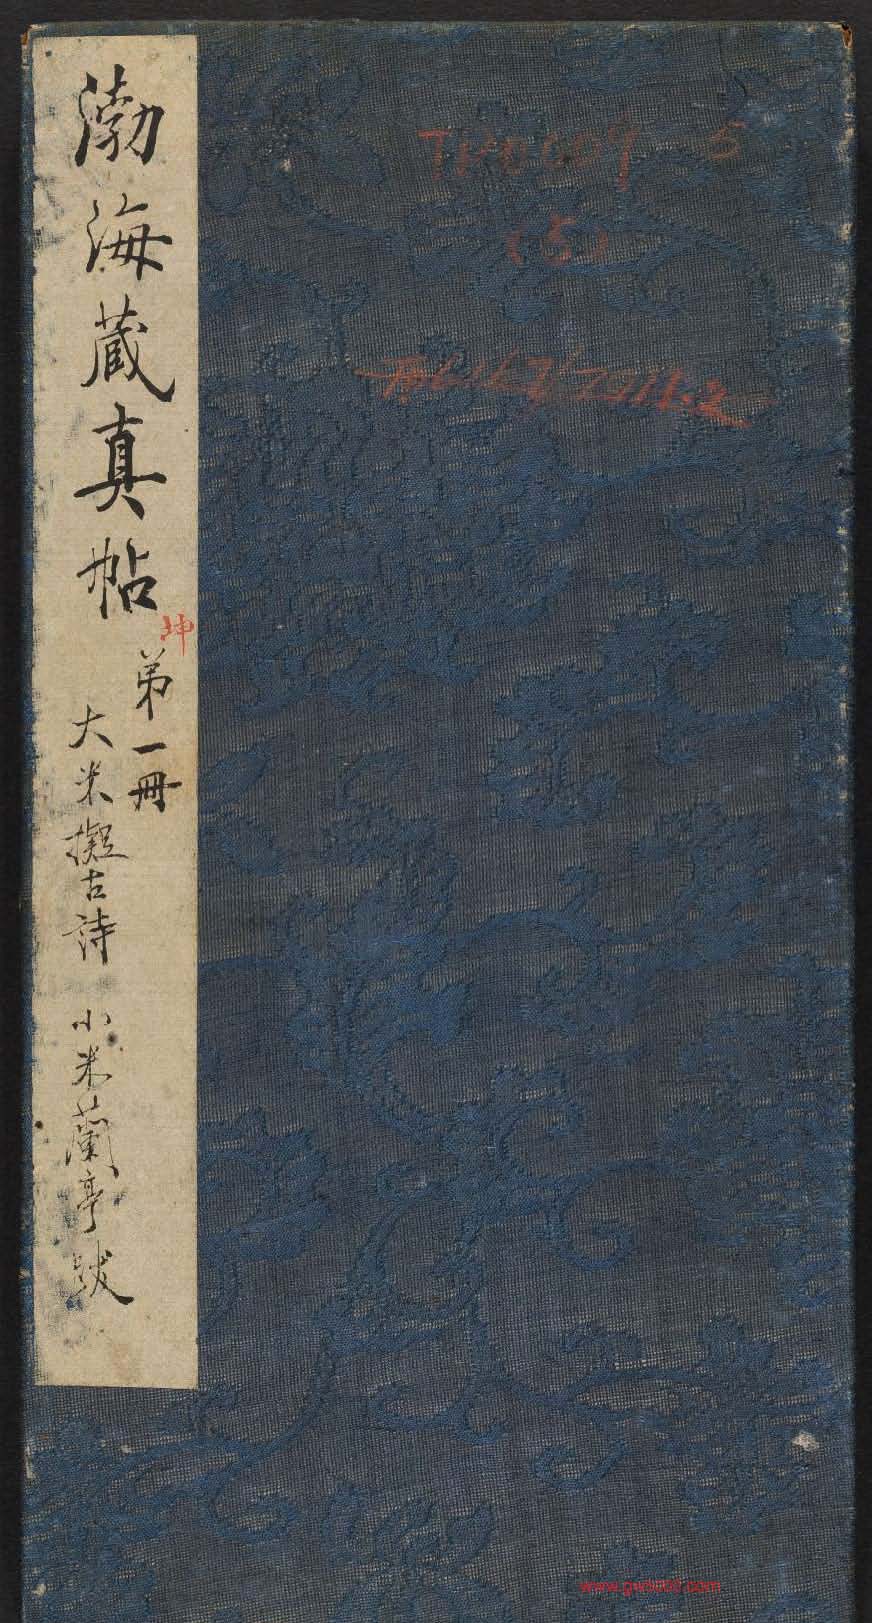 渤海藏真帖
坤
第一冊
大米擬古詩 小米蘭亭跋
TP0609 5
(5)
www.gw5000.com